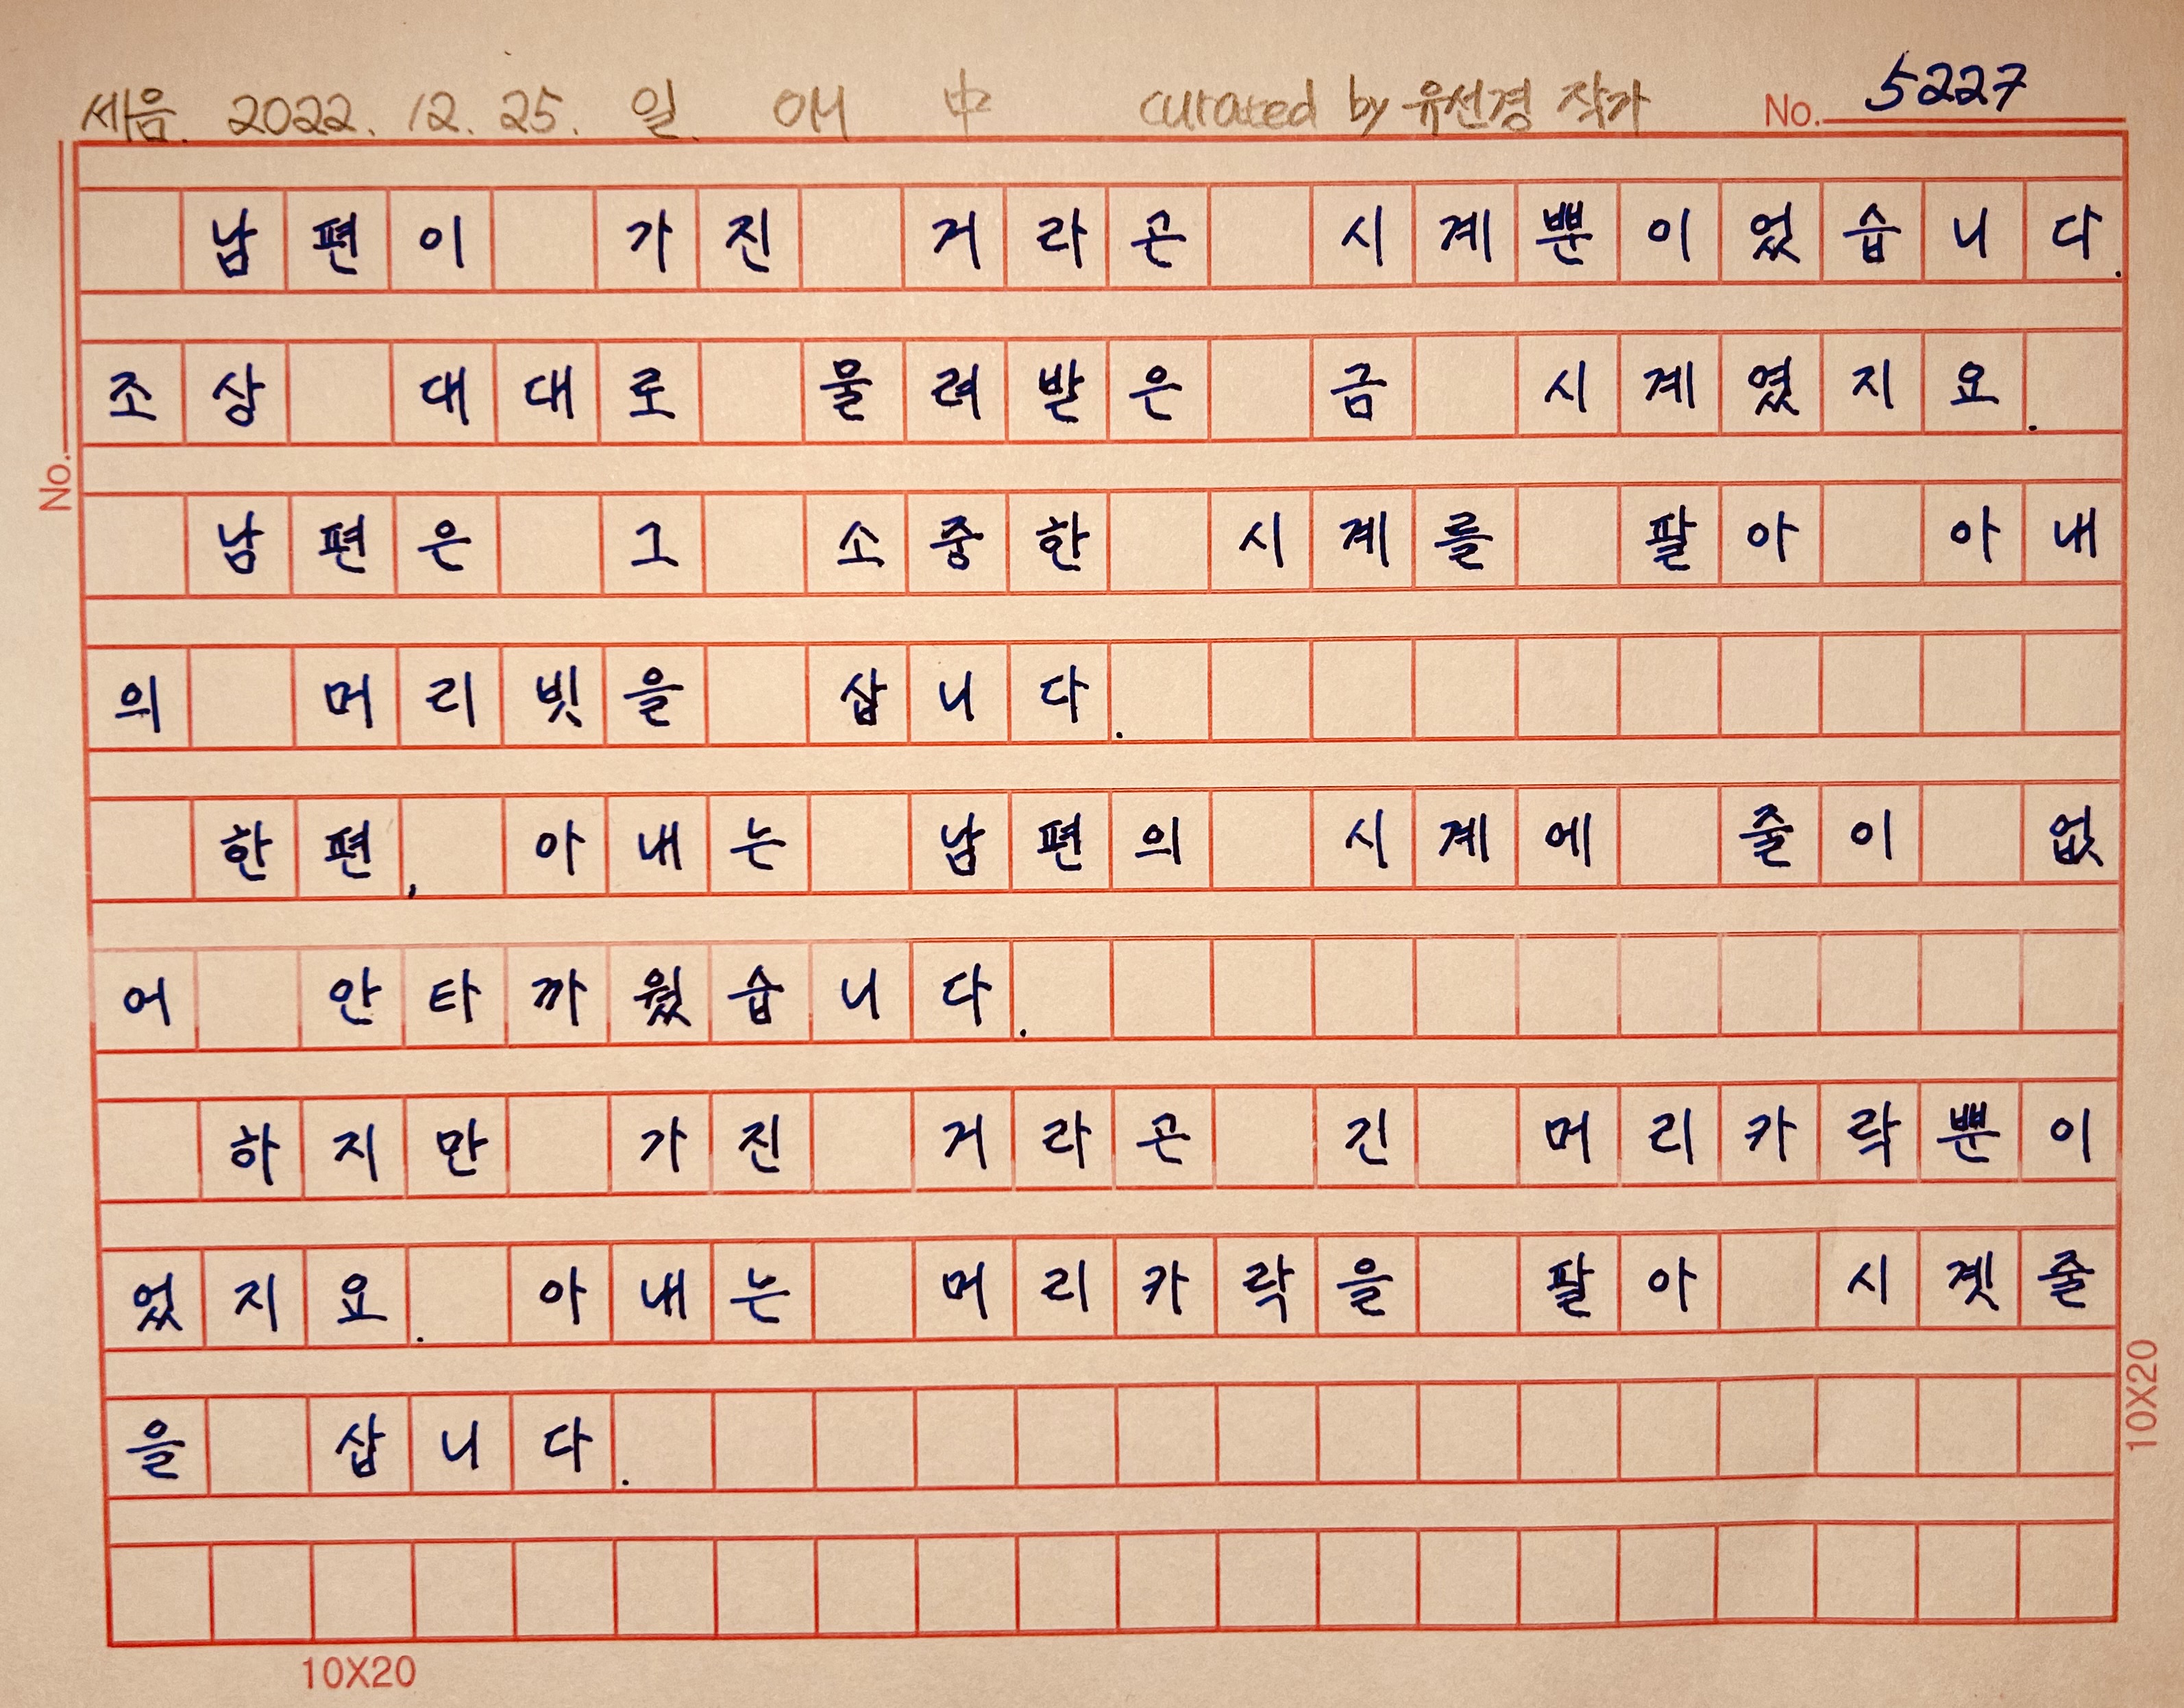 세음. 2022. 12. 25. 일. 애 中 curated by 유선경 작가 No. 5227
남편이 가진 거라곤 시계뿐이었습니다.
조상 대대로 물려받은 금 시계였지요.
남편은 그 소중한 시계를 팔아 아내
의 머리빗을 삽니다.
한편, 아내는 남편의 시계에 줄이 없
어 안타까웠습니다.
하지만 가진 거라곤 긴 머리카락뿐이
었지요. 아내는 머리카락을 팔아 시곗줄
을 삽니다.
No.
10X20
10X20